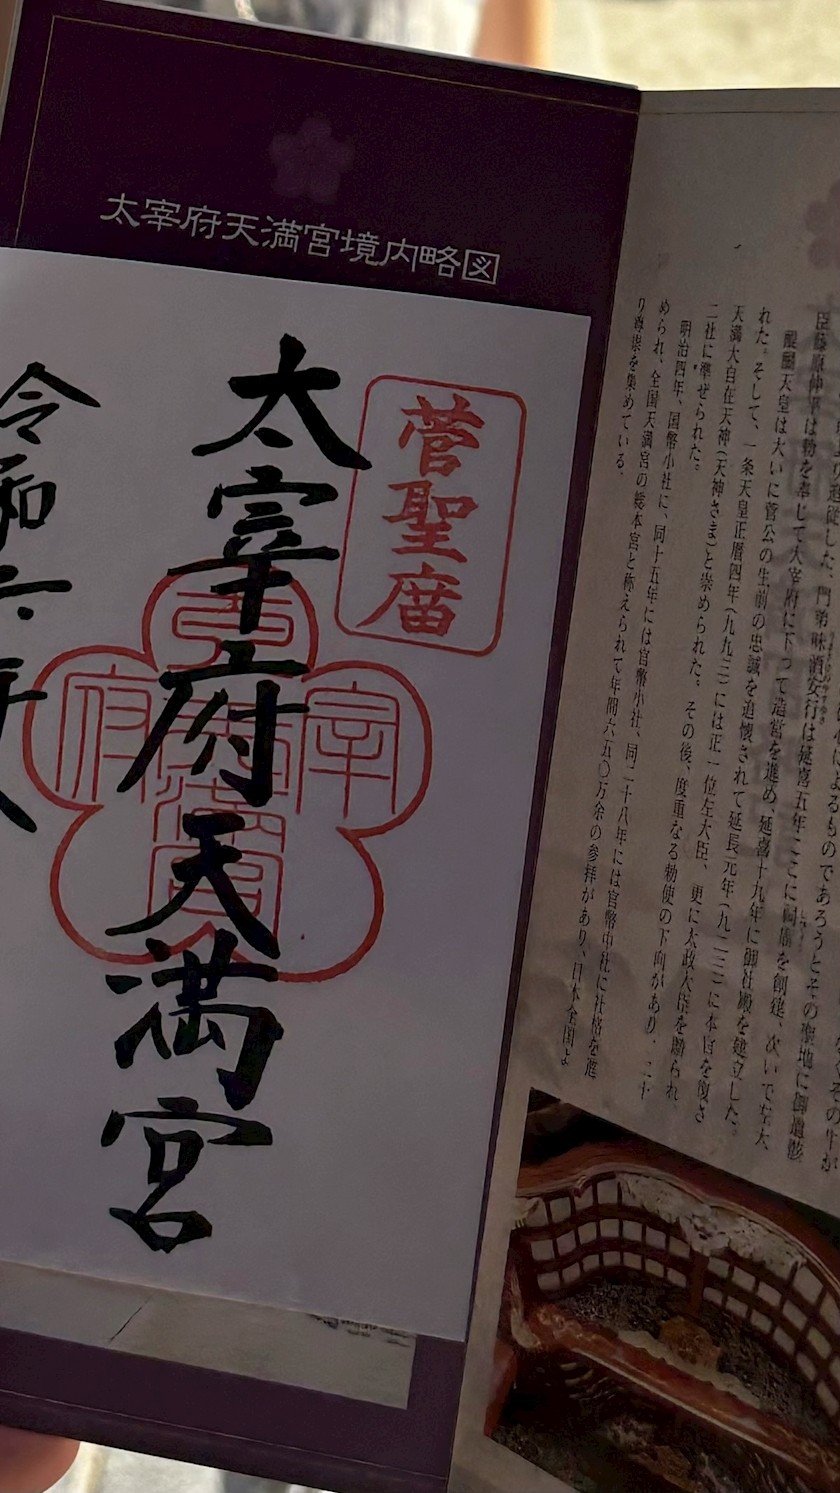 太宰府天満宮境内略図
菅聖庿
太宰府天満宮
令和六年
臣藤原仲平は勅を奉じて大宰府に下って造営を進め、延喜十九年に御社殿を建立した。
醍醐天皇は大いに菅公の生前の忠誠を追懐されて延長元年(九二三)に本官を復さ
れた。そして、一条天皇正暦四年(九九三)には正一位左大臣、更に太政大臣を贈られ、
天満大自在天神(天神さま)と崇められた。その後、度重なる勅使の下向があり、二十
二社に準ぜられた。
明治四年、国幣小社に、同十五年には官幣小社、同二十八年には官幣中社に社格を進
められ、全国天満宮の総本宮と称えられて年間六五〇万余の参拝があり、日本全国よ
り尊崇を集めている。